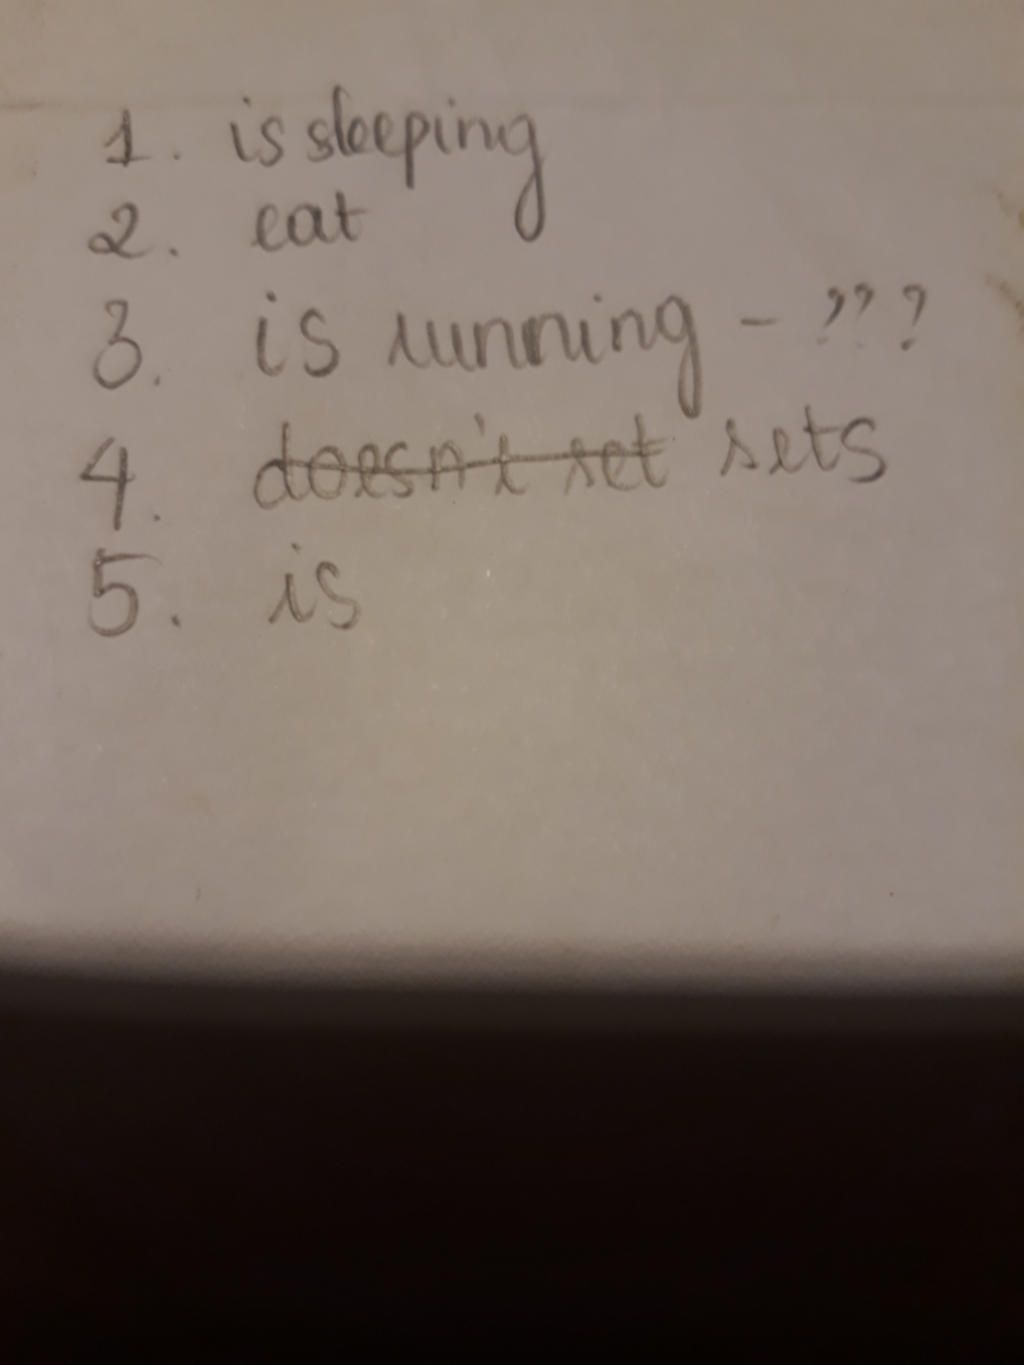 1. is sleeping
2. eat
3. is running - ???
4. doesn't set sets
5. is